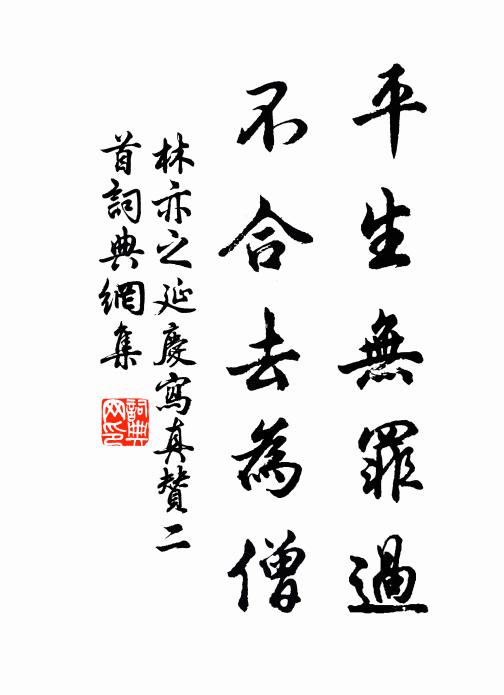 平生無罪過
不合去為僧
林亦之延慶寫真贊二
首詞典網集
詞典
网印